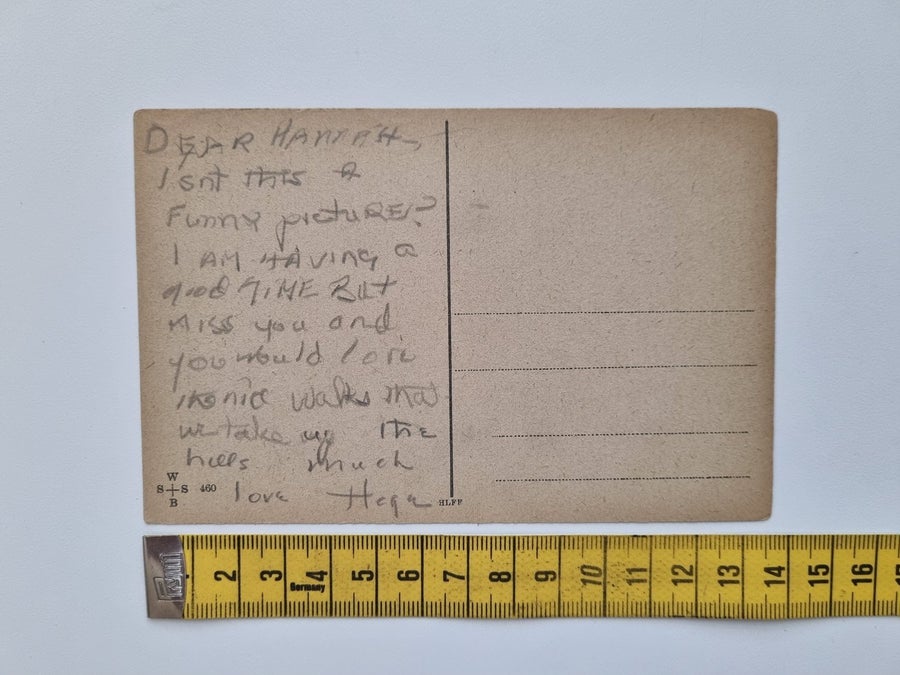 DEAR HANNAH,
Isnt this a
Funny picture?
I AM HAVING a
good TIME BUt
Miss you and
you would love
the nice walks that
we take up the
hills much
love
W
S S 460
B
HLFF
2 3 4 5 6 7 8 9 10 11 12 13 14 15 16
Germany